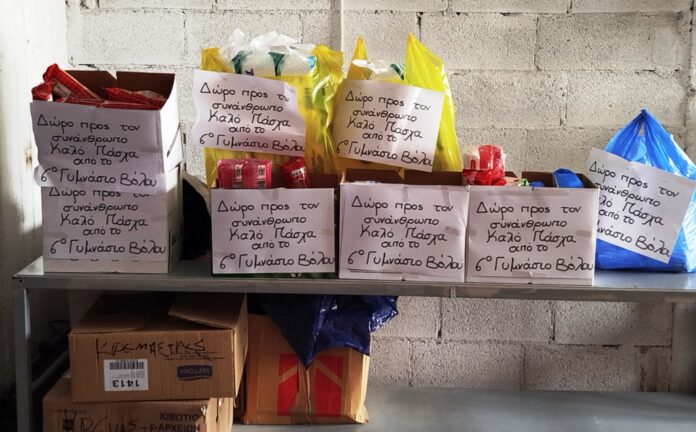 Δώρο προς τον
συνάνθρωπο
Καλό Πάσχα
από το
6º Γυμνάσιο Βόλου
Δώρο προς τον
συνάνθρωπο
Καλό Πάσχα
από το
6º Γυμνάσιο Βόλου
Δώρο προς τον
συνάνθρωπο
Καλό Πάσχα
από το
6º Γυμνάσιο Βόλου
Δώρο προς τον
συνάνθρωπο
Καλό Πάσχα
από το
6º Γυμνάσιο Βόλου
Δώρο προς τον
συνάνθρωπο
Καλό Πάσχα
από το
6º Γυμνάσιο Βόλου
Δώρο προς τον
συνάνθρωπο
Καλό Πάσχα
από το
6º Γυμνάσιο Βόλου
Δώρο προς τον
συνάνθρωπο
Καλό Πάσχα
από το
6º Γυμνάσιο Βόλου
Δώρο προς τον
συνάνθρωπο
Καλό Πάσχα
από το
6º Γυμνάσιο Βόλου
1413
SEPTONA
ΚΙΒΩΤΙΟ
ΑΡΧΕΙΩΝ